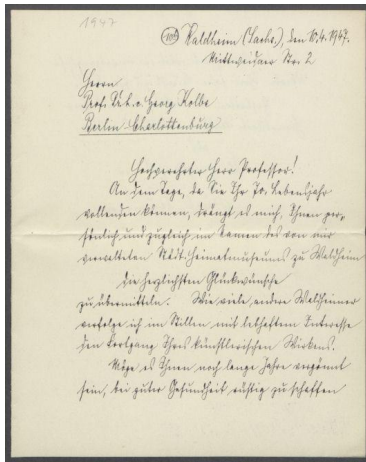 1947
(10b) Waldheim (Sachs.), den 10.4.1947.
Mittweidaer Str. 2
Herrn
Prof. Dr. h. c. Georg Kolbe
Berlin-Charlottenburg
Hochverehrter Herr Professor!
An dem Tage, da Sie Ihr 70. Lebensjahr
vollenden können, drängt es mich, Ihnen per-
sönlich und zugleich im Namen des von mir
verwalteten Städt. Heimatmuseums zu Waldheim
die herzlichsten Glückwünsche
zu übermitteln. Wie viele andere Waldheimer
verfolge ich im Stillen mit lebhaftem Interesse
den Fortgang Ihres künstlerischen Wirkens.
Möge es Ihnen noch lange Jahre vergönnt
sein, bei guter Gesundheit rüstig zu schaffen